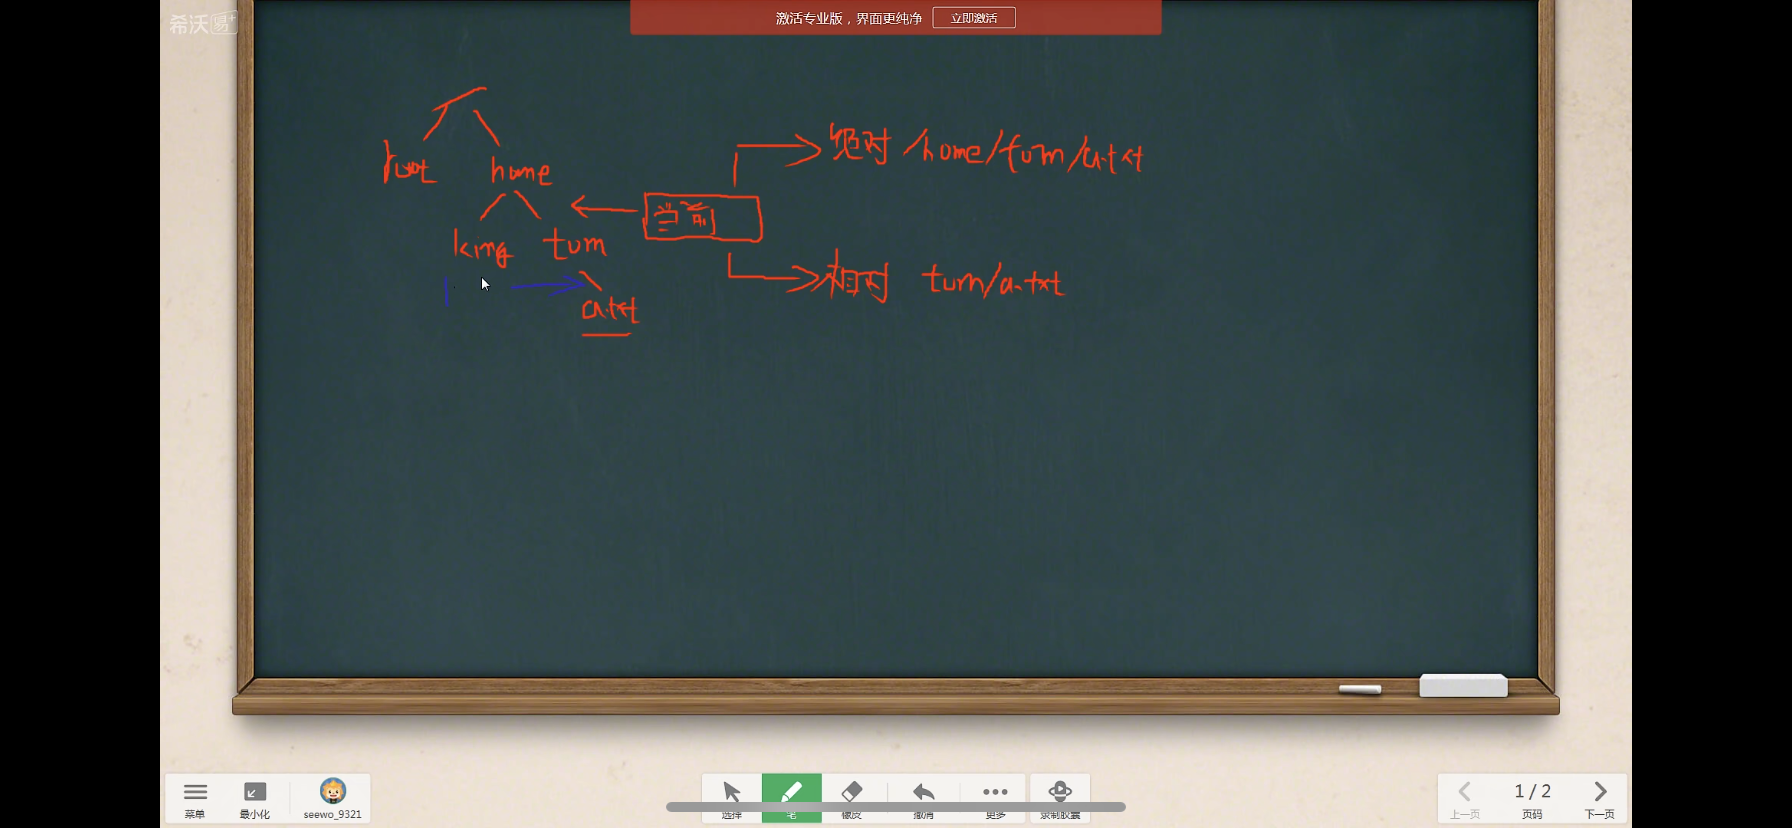 希沃易+
激活专业版，界面更纯净 立即激活
/
root home
绝对 /home/tom/a.txt
当前
king tom
相对 tom/a.txt
a.txt
菜单 最小化 seewo_9321 选择 笔 橡皮 撤消 更多 录制胶囊 上一页 1 / 2 页码 下一页